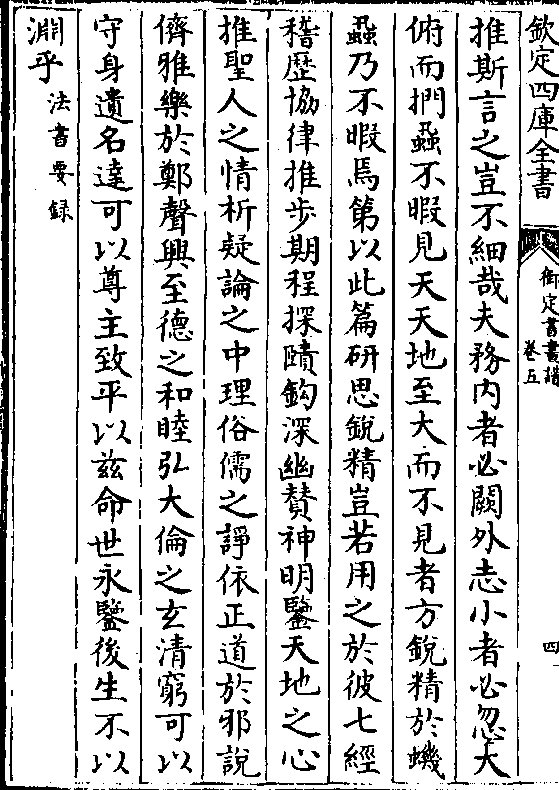 欽定四庫全書
御定書畫譜
卷五
四
推斯言之豈不細哉夫務内者必闕外志小者必忽大
俯而捫蝨不暇見天天地至大而不見者方銳精於蟣
蝨乃不暇焉第以此篇研思銳精豈若用之於彼七經
稽歴協律推歩期程探賾鈎深幽贊神明鑒天地之心
推聖人之情析疑論之中理俗儒之諍依正道於邪說
儕雅樂於鄭聲興至德之和睦弘大倫之玄清窮可以
守身遺名達可以尊主致平以兹命世永鑒後生不以
淵乎法書要録